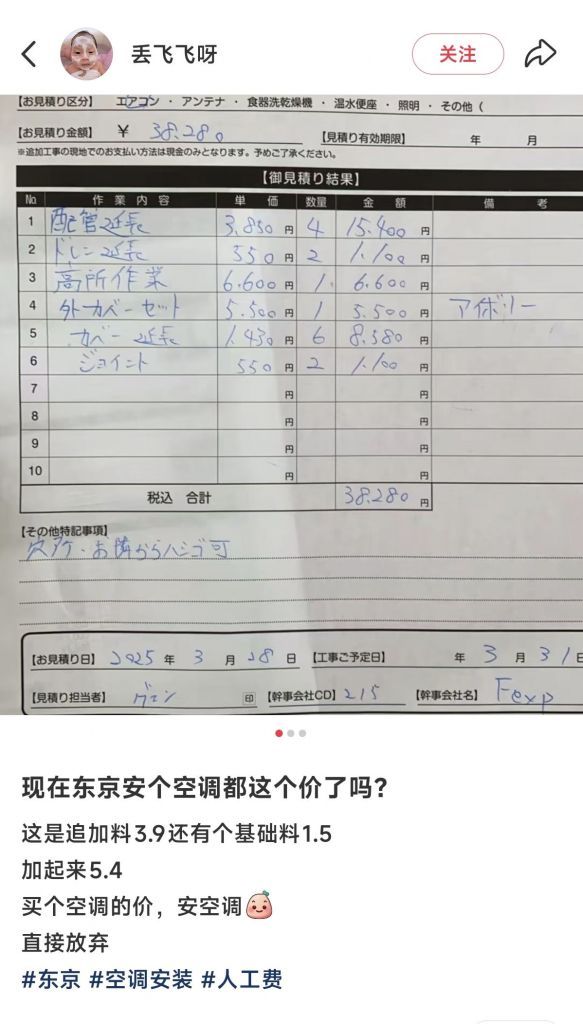 丢飞飞呀
关注
【お見積り区分】 エアコン ・ アンテナ ・ 食器洗乾燥機 ・ 温水便座 ・ 照明 ・ その他 (
【お見積り金額】 ¥ 38.280 【見積り有効期限】 年 月
※追加工事の現地でのお支払い方法は現金のみとなります。予めご了承ください。
【御見積り結果】
No. 作業内容 単価 数量 金額 備考
1 配管延長 3.850円 4 15.400円
2 ドレン延長 550円 2 1.100円
3 高所作業 6.600円 1. 6.600円
4 外カバーセット 5.500円 1 5.500円 アイボリー
5 カバー延長 1.430円 6 8.580円
6 ジョイント 550円 2 1.100円
7 円 円
8 円 円
9 円 円
10 円 円
税込 合計 38.280円
【その他特記事項】
お隣からハシゴ可
【お見積り日】 2025年 3月 28日 【工事ご予定日】 年 3月 31日
【見積り担当者】 グエン 印 【幹事会社CD】 215 【幹事会社名】 Fexp
现在东京安个空调都这个价了吗?
这是追加料3.9还有个基础料1.5
加起来5.4
买个空调的价，安空调
直接放弃
#东京 #空调安装 #人工费